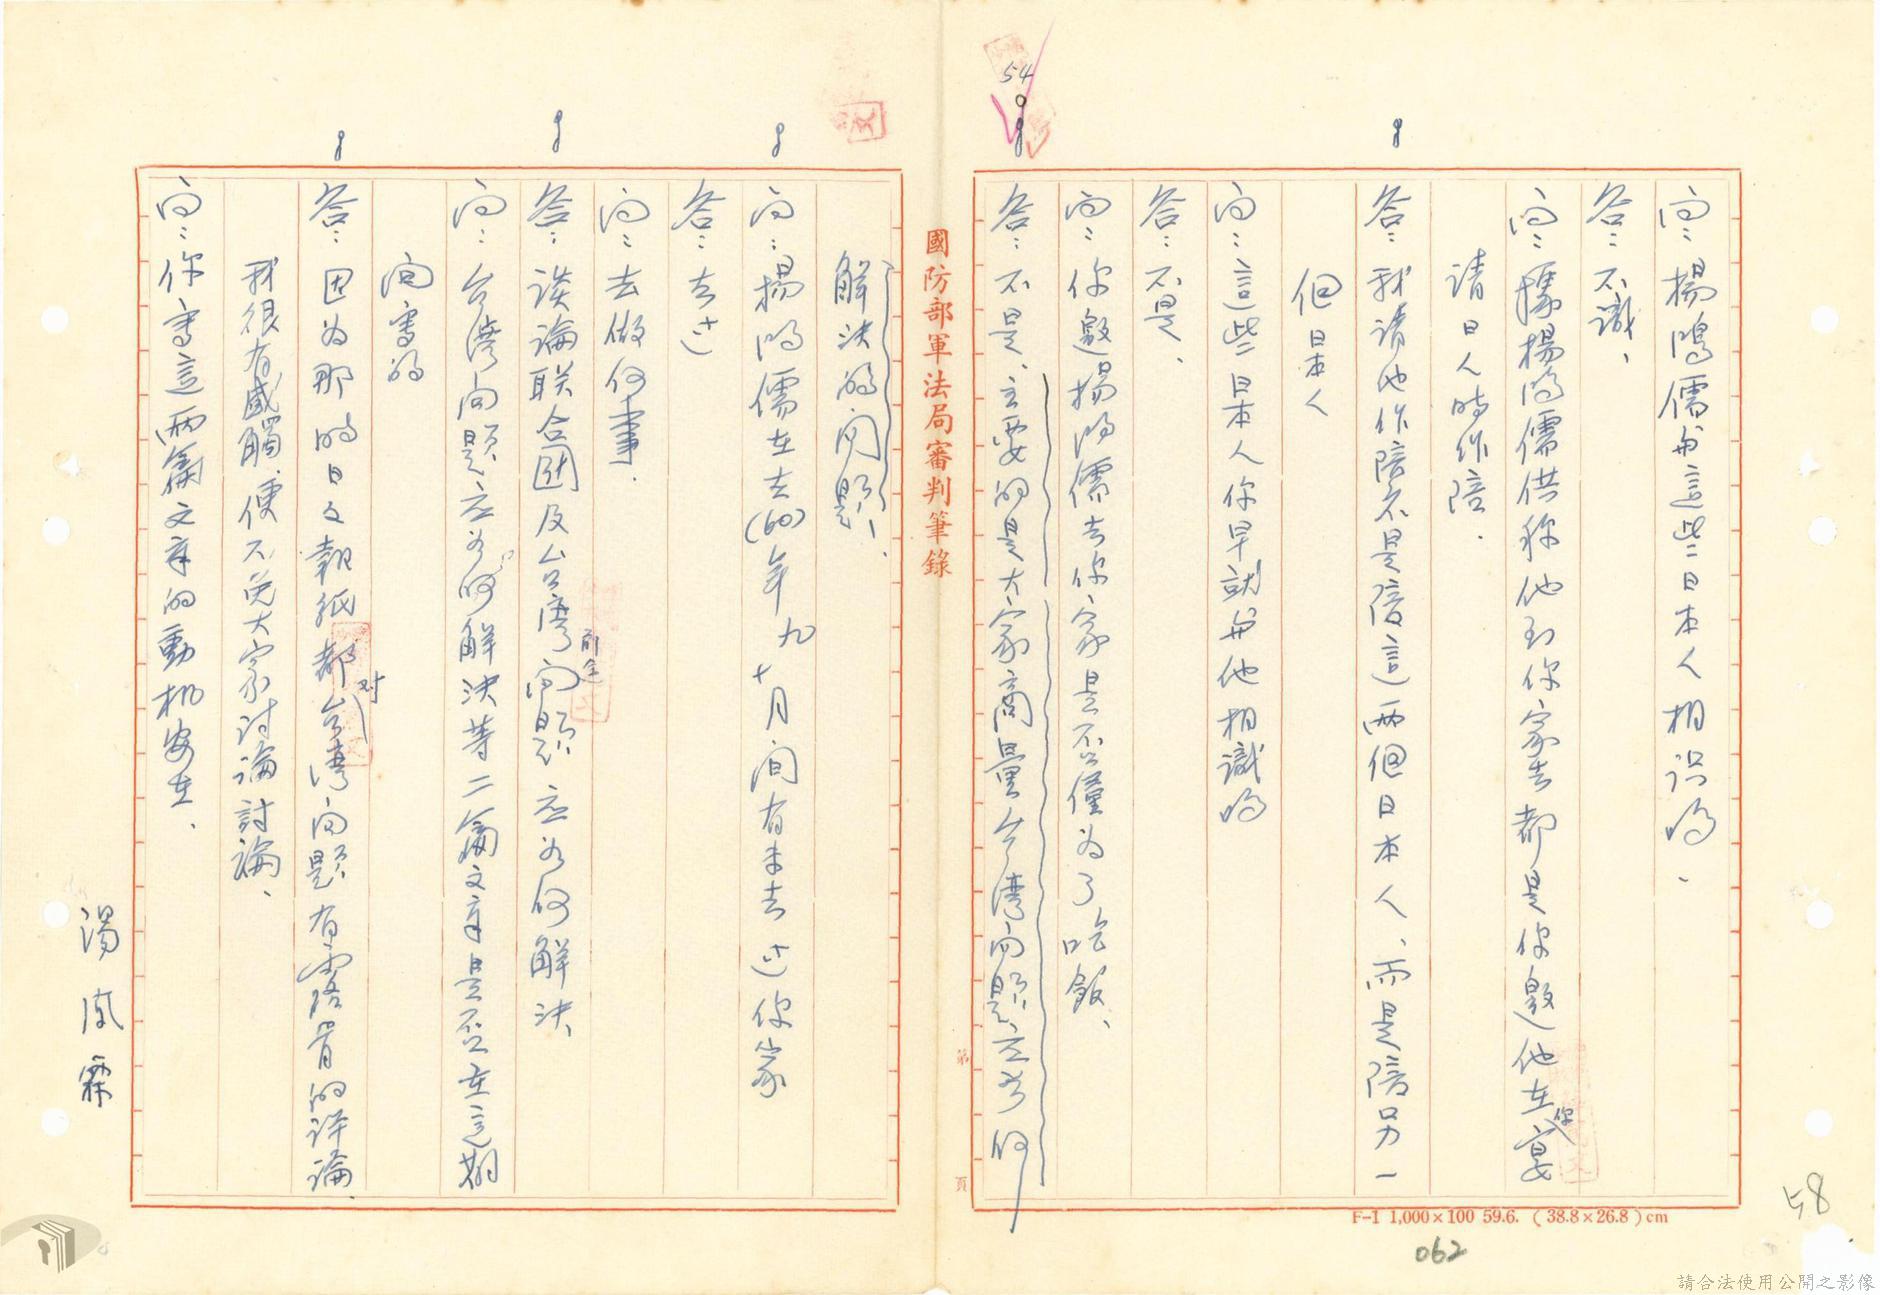 54
問：楊鴻儒與這些日本人相识嗎、
答：不識、
問：據楊鴻儒供称他到你家去都是你邀他在你宴
請日人時作陪．
答：我請他作陪不是陪這兩個日本人、而是陪另一
個日本人
問：這些日本人你早就與他相識嗎
答：不是、
問：你邀楊鴻儒去你家是否僅為了吃飯、
答：不是、主要的是大家商量台湾問題应如何
國防部軍法局審判筆錄
第
頁
解決的問題、
問：楊鴻儒在去(60)年九十月间有未去过你家
答：去过
問：去做何事．
答：谈論联合国及台湾前途問題应如何解決、
問：台湾問題应如何解決等二篇文章是否在这期
间寫的
答：因为那時日文報紙都对台湾問題有露骨的评論、
我很有感觸、便不免大家討論討論、
問：你寫這兩篇文章的動机安在、
湯鳳霖
F-1 1,000×100 59.6. (38.8×26.8)cm
062
58
請合法使用公開之影像